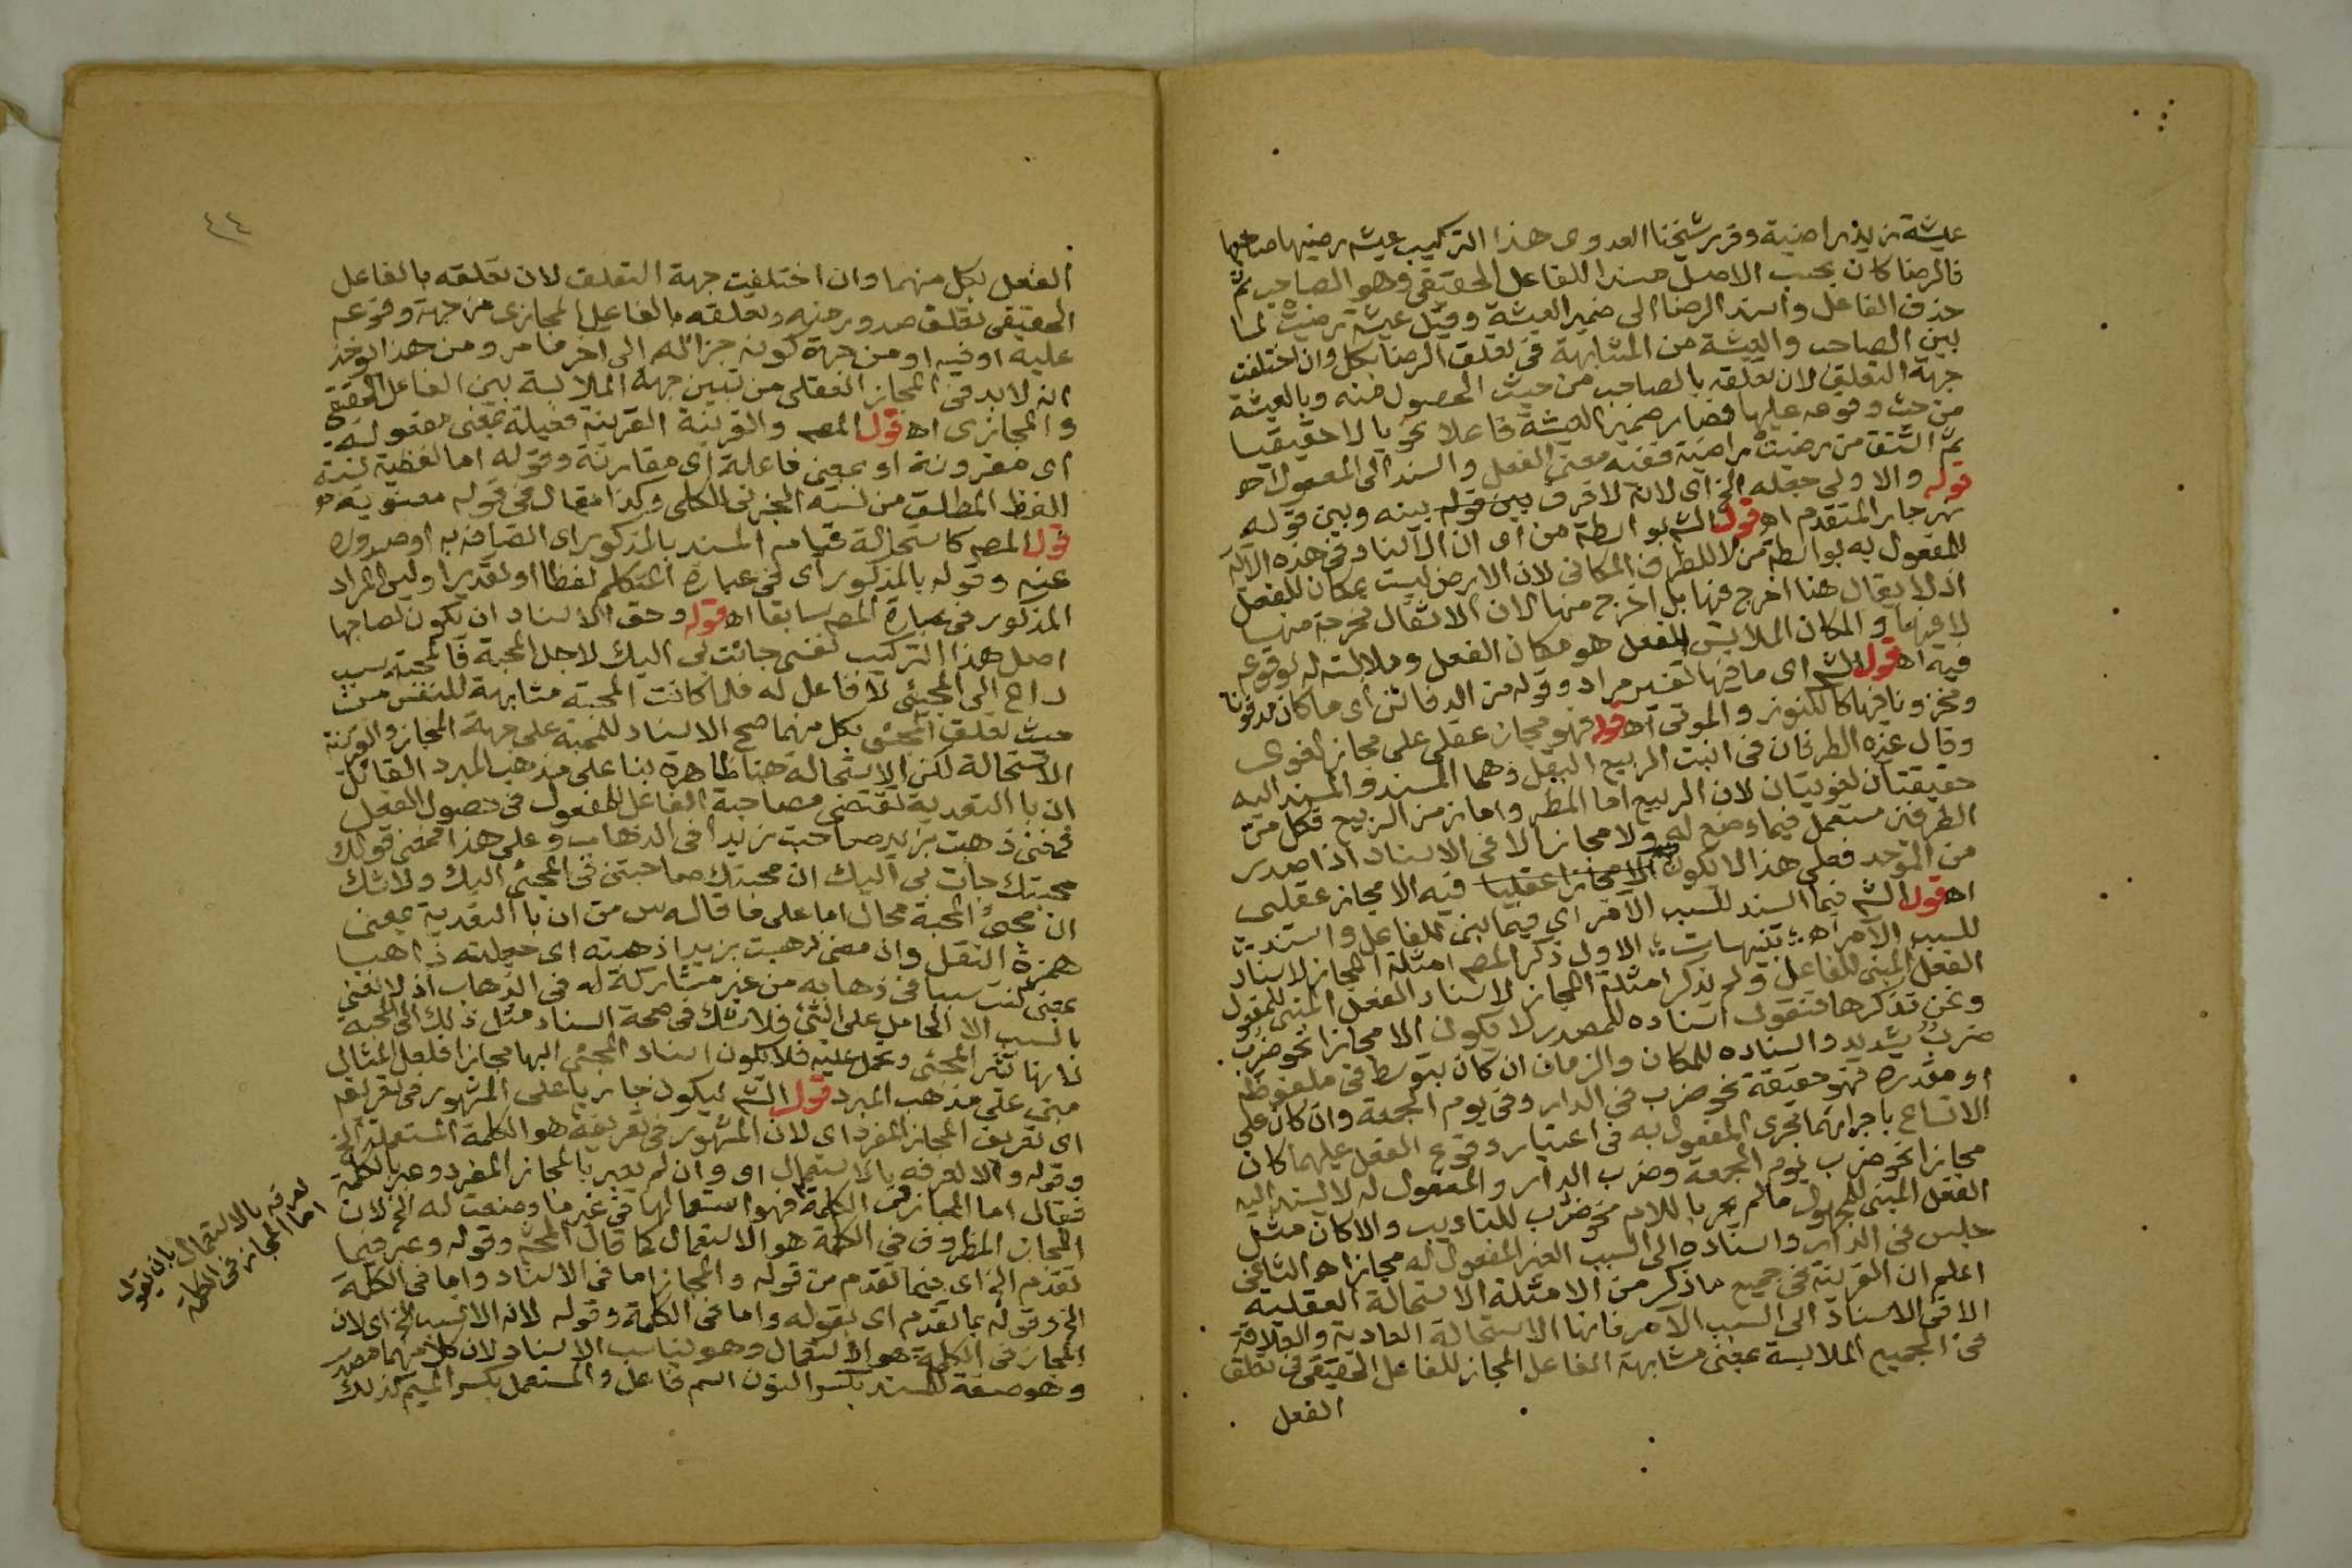 عيشة زيد راضية وقرر شيخنا العدوى هذا التركيب عيشة رضيها صاحبها
فالرضا كان بحسب الاصل مسندا للفاعل الحقيقى وهو الصاحب ثم
حذف الفاعل واسند الرضا الى ضمير العيشة وقيل عيشة رضيت لما
بين الصاحب والعيشة من المشابهة فى تعلق الرضا بكل وان اختلفت
جهة التعلق لان تعلقه بالصاحب من حيث الحصول منه وبالعيشة
من حيث وقوعه عليها فصار ضمير العيشة فاعلا نحويا لا حقيقيا
ثم اشتق من رضيت راضية ففيه معنى الفعل واسند الى المفعول اه
قوله والاولى جعله الخ اى لانه لا فرق بين قوله بينه وبين قوله
نهر جار المتقدم اه قول الش بواسطة من اى ان الاسناد فى هذه الآية
للمفعول به بواسطة من لا للظرف المكانى لان الارض ليست بمكان للفعل
اذ لا يقال هنا اخرج فيها بل اخرج منها لان الاثقال مخرجة منها
لا فيها والمكان الملابس للفعل هو مكان الفعل وملابسته له لوقوعه
فيه اه قول الش اى ما فيها تفسير مراد وقوله من الدفائن اى ما كان مدفونا
ومخزونا فيها كالكنوز والموتى اه قوله فهو مجاز عقلى على مجاز لغوى
وقال غيره الطرفان فى انبت الربيع البقل وهما المسند والمسند اليه
حقيقتان لغويتان لان الربيع اما المطر واما زمن الربيع فكل من
الطرفين مستعمل فيما وضع له ولا مجاز الا فى الاسناد اذا صدر
من الموحد فعلى هذا لا يكون الا مجازا عقليا فيه الا مجاز عقلى
اه قول الش فيما اسند للسبب الآمر اى فيما بنى للفاعل واسند
للسبب الآمر اه تنبيهات الاول ذكر المص امثلة المجاز لاسناد
الفعل المبنى للفاعل ولم يذكر امثلة المجاز لاسناد الفعل المبنى للمفعول
ونحن نذكرها فنقول اسناده للمصدر لا يكون الا مجازا نحو ضرب
ضرب شديد واسناده للمكان والزمان ان كان بتوسط فى ملفوظة
او مقدرة فهو حقيقة نحو ضرب فى الدار وفى يوم الجمعة وان كان على
الاتساع باجرائهما مجرى المفعول به فى اعتبار وقوع الفعل عليهما كان
مجازا نحو ضرب يوم الجمعة وضرب الدار والمفعول له لا يسند اليه
الفعل المبنى للمجهول ما لم يجر باللام نحو ضرب للتاديب والا كان مثل
جلس فى الدار واسناده الى السبب الغير المفعول له مجازا اه الثانى
اعلم ان القرينة فى جميع ما ذكر من الامثلة الاستحالة العقلية
الا فى الاسناد الى السبب الآمر فانها الاستحالة العادية والعلاقة
فى الجميع الملابسة بمعنى مشابهة الفاعل المجاز للفاعل الحقيقى فى تعلق
الفعل
٤٤
الفعل بكل منهما وان اختلفت جهة التعلق لان تعلقه بالفاعل
الحقيقى تعلق صدور منه وتعلقه بالفاعل المجازى من جهة وقوعه
عليه او فيه او من جهة كونه جزأ له الى اخر ما مر ومن هذا يوخذ
انه لا بد فى المجاز العقلى من تبيين جهة الملابسة بين الفاعل الحقيقى
والمجازى اه قول المص والقرينة القرينة فعيلة بمعنى مفعولة
اى مقرونة او بمعنى فاعلة اى مقارنة وقوله اما لفظية نسبة
للفظ المطلق من نسبة الجزئى للكلى وكذا يقال فى قوله معنوية اه
قول المص كاستحالة قيام المسند بالمذكور اى اتصافه به او صدوره
عنه وقوله بالمذكور اى فى عبارة المتكلم لفظا او تقديرا وليس المراد
المذكور فى عبارة المص سابقا اه قوله وحق الاسناد ان يكون لصاحبها
اصل هذا التركيب نفسى جائت بى اليك لاجل المحبة فالمحبة سبب
داع الى المجيئى لا فاعل له فلما كانت المحبة مشابهة للنفس من
حيث تعلق المجئى بكل منهما صح الاسناد للمحبة على جهة المجاز والقرينة
الاستحالة لكن الاستحالة هنا ظاهرة بناء على مذهب المبرد القائل
ان با التعدية تقتضى مصاحبة الفاعل للمفعول فى حصول الفعل
فمعنى ذهبت بزيد صاحبت زيدا فى الذهاب وعلى هذا فمعنى قولك
محبتك جات بى اليك ان محبتك صاحبتنى فى المجئى اليك ولا شك
ان مجئ المحبة محال اما على ما قاله س من ان با التعدية بمعنى
همزة النقل وان معنى ذهبت بزيد اذهبته اى جعلته ذاهبا
بمعنى كنت سببا فى ذهابه من غير مشاركة له فى الذهاب اذ لا نعنى
بالسبب الا الحامل على الشئ فلا شك فى صحة اسناد مثل ذلك الى المحبة
لانها تثير المجئى وتحمل عليه فلا يكون اسناد المجئى اليها مجازا فلعل المثال
مبنى على مذهب المبرد قول الش ليكون جاريا على المشهور فى تعريفه
اى تعريف المجاز المفرد اى لان المشهور فى تعريفه هو الكلمة المستعملة الخ
وقوله والا لعرفه بالاستعمال اى وان لم يعبر بالمجاز المفرد وعبر بالكلمة
فقال اما المجاز فى الكلمة فهو استعمالها فى غير ما وضعت له الخ لان
المجاز المظروف فى الكلمة هو الاستعمال كما قال المحشى وقوله وعبر فيما
تقدم الخ اى فيما تقدم من قوله والمجاز اما فى الاسناد واما فى الكلمة
الخ وقوله بما تقدم اى بقوله واما فى الكلمة وقوله لانه الانسب الخ اى لان
المجاز فى الكلمة هو الاستعمال وهو يناسب الاسناد لان كلا منهما مصدر
وهو صفة للمسند بكسر النون اسم فاعل والمستعمل بكسر الميم كذلك
لعرفه بالاستعمال بان يقول
اما المجاز فى الكلمة